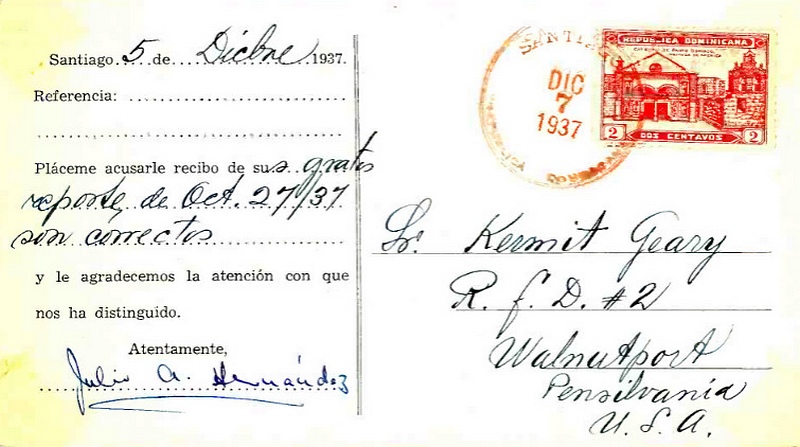 Santiago 5 de Dicbre 1937.
Referencia:
Pláceme acusarle recibo de su s gratos
reporte, de Oct. 27/37
son correctos
y le agradecemos la atención con que
nos ha distinguido.
Atentamente,
Julio A. Hernández
SANTIAGO
DIC
7
1937
REPUBLICA DOMINICANA
2 DOS CENTAVOS 2
Sr. Kermit Geary
R. F. D. #2
Walnutport
Pensilvania
U. S. A.